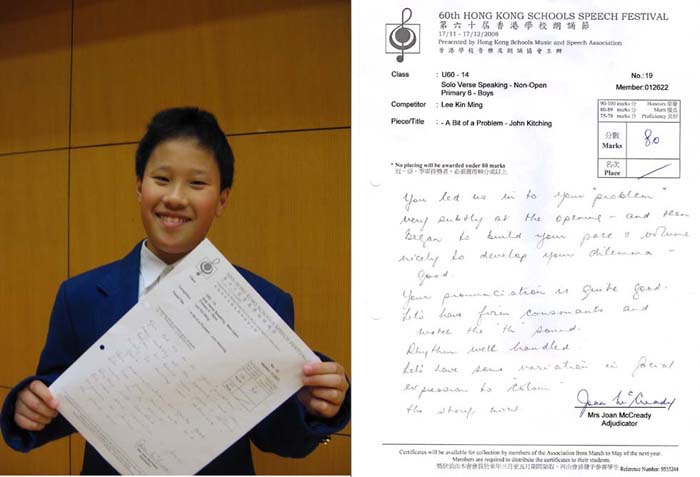 60th HONG KONG SCHOOLS SPEECH FESTIVAL
第六十屆香港學校朗誦節
17/11 - 17/12/2008
Presented by Hong Kong Schools Music and Speech Association
香港學校音樂及朗誦協會主辦
Class : U60 - 14 No.: 19
Solo Verse Speaking - Non-Open Member:012622
Primary 6 - Boys
Competitor : Lee Kin Ming
Piece/Title : - A Bit of a Problem - John Kitching
90-100 marks 分 Honours 榮譽
80-89 marks 分 Merit 優良
75-79 marks 分 Proficiency 良好
分數
Marks 80
名次
Place
* No placing will be awarded under 80 marks
冠、亞、季軍持獎者,必須獲得80分或以上
You led us in to your "problem"
very subtly at the opening - and then
began to build your pace & volume
nicely to develop your dilemma -
Good.
Your pronunciation is quite good.
Let's have firm consonants and
watch the "th" sound.
Rhythm well handled.
Let's have some variation in facial
expression to "colour"
the story now
Joan McCready
Mrs Joan McCready
Adjudicator
Certificates will be available for collection by members of the Association from March to May of the next year.
Members are required to distribute the certificates to their students.
Reference Number: 9533244